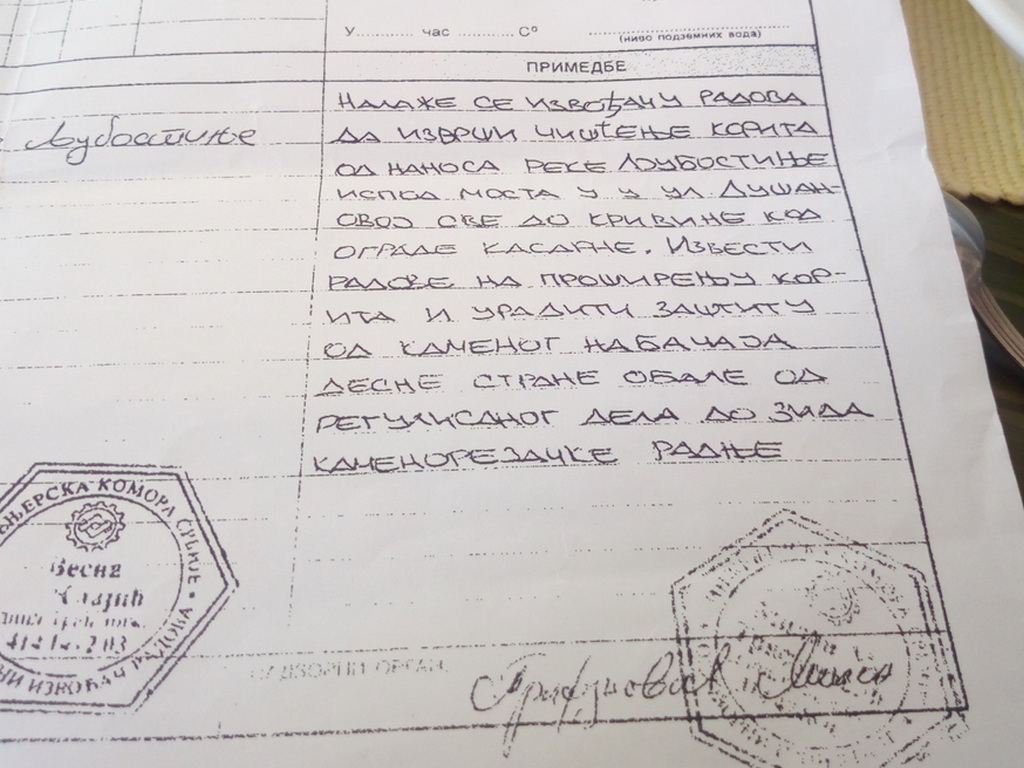 У............ час ............ С°
(ниво подземних вода)
ПРИМЕДБЕ
Љубостиње
НАЛАЖЕ СЕ ИЗВОЂАЧУ РАДОВА
ДА ИЗВРШИ ЧИШЋЕЊЕ КОРИТА
ОД НАНОСА РЕКЕ ЉУБОСТИЊЕ
ИСПОД МОСТА У У УЛ ДУШАН-
ОВОЈ СВЕ ДО КРИВИНЕ КОД
ОГРАДЕ КАСАРНЕ. ИЗВЕСТИ
РАДОВЕ НА ПРОШИРЕЊУ КОР-
ИТА И УРАДИТИ ЗАШТИТУ
ОД КАМЕНОГ НАБАЧАЈА
ДЕСНЕ СТРАНЕ ОБАЛЕ ОД
РЕГУЛИСАНОГ ДЕЛА ДО ЗИДА
КАМЕНОРЕЗАЧКЕ РАДЊЕ
ЊЕРСКА КОМОРА СРБИЈЕ
Весна
НИ ИЗВОЂАЧ РАДОВА
НАДЗОРНИ ОРГАН